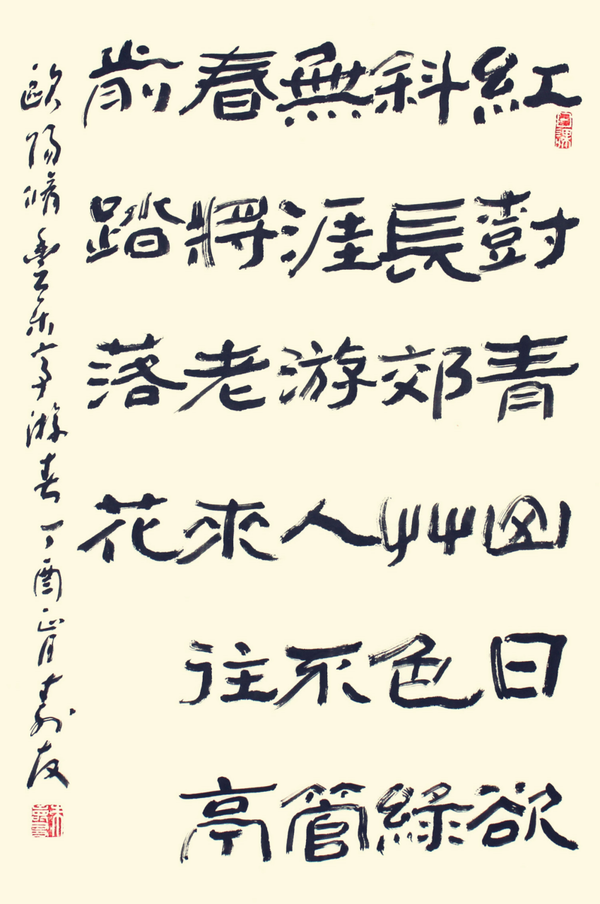 紅樹青山日欲
斜長郊艸色綠
無涯游人不管
春將老來往亭
前踏落花
歐陽脩豐乐亭游春丁酉正月壽友